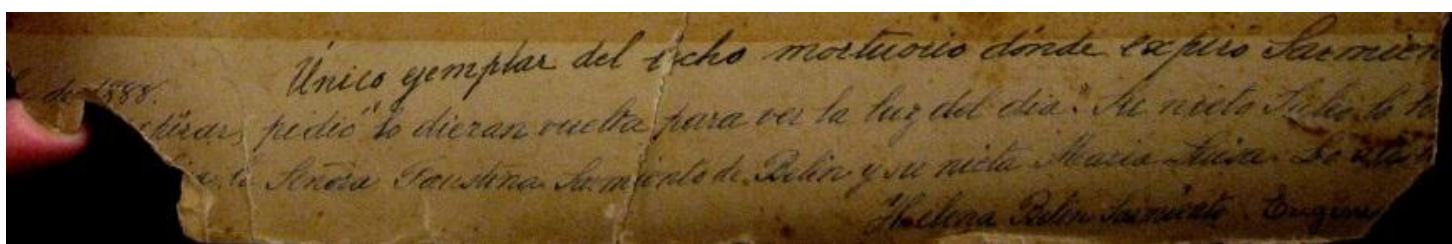 Único ejemplar del lecho mortuorio dónde expiró Sarmien
de 1888.
pirar, pidió "lo dieran vuelta para ver la luz del dia". Su nieto Julio lo
la Señora Faustina Sarmiento de Belin y su nieta Maria Luisa.
Helena Belin Sarmiento Eugeni